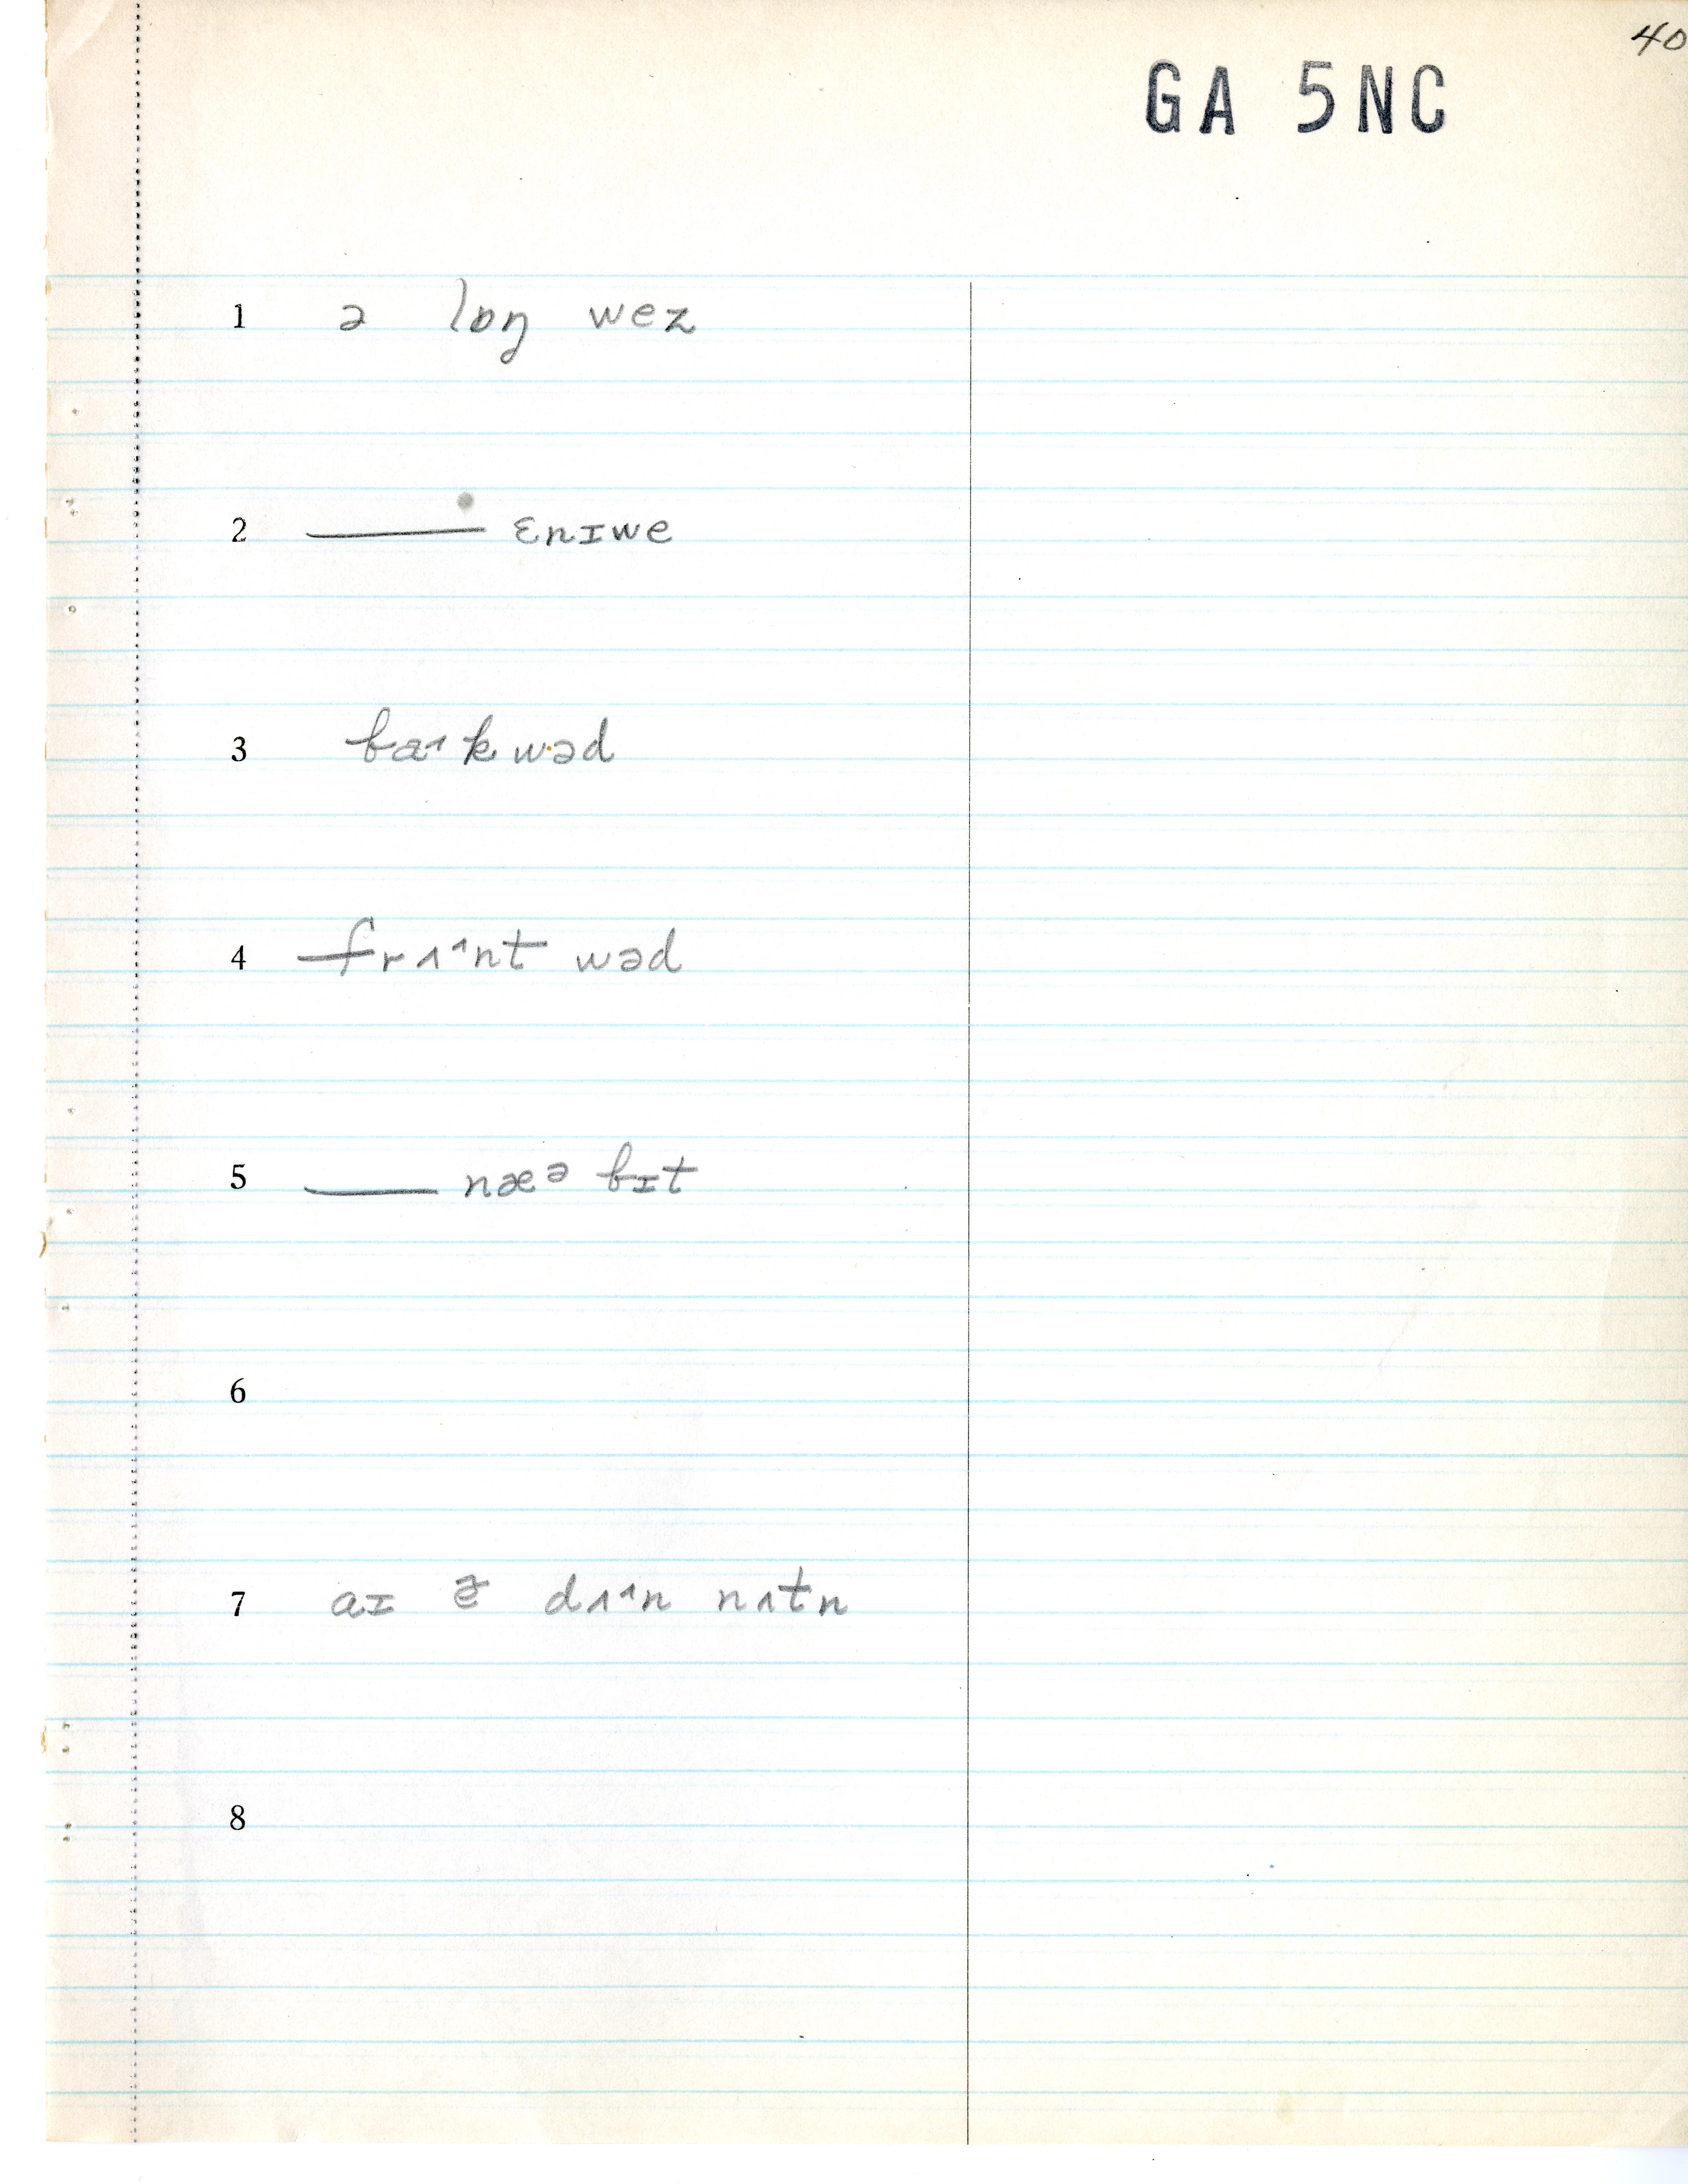 40
GA 5NC
1 ə lɒŋ wez
2 —— ɛnɪwe
3 baɪkwəd
4 — frʌ^nt wəd
5 —— næᵊ bɪt
6
7 aɪ dʌ^n nʌtn
8